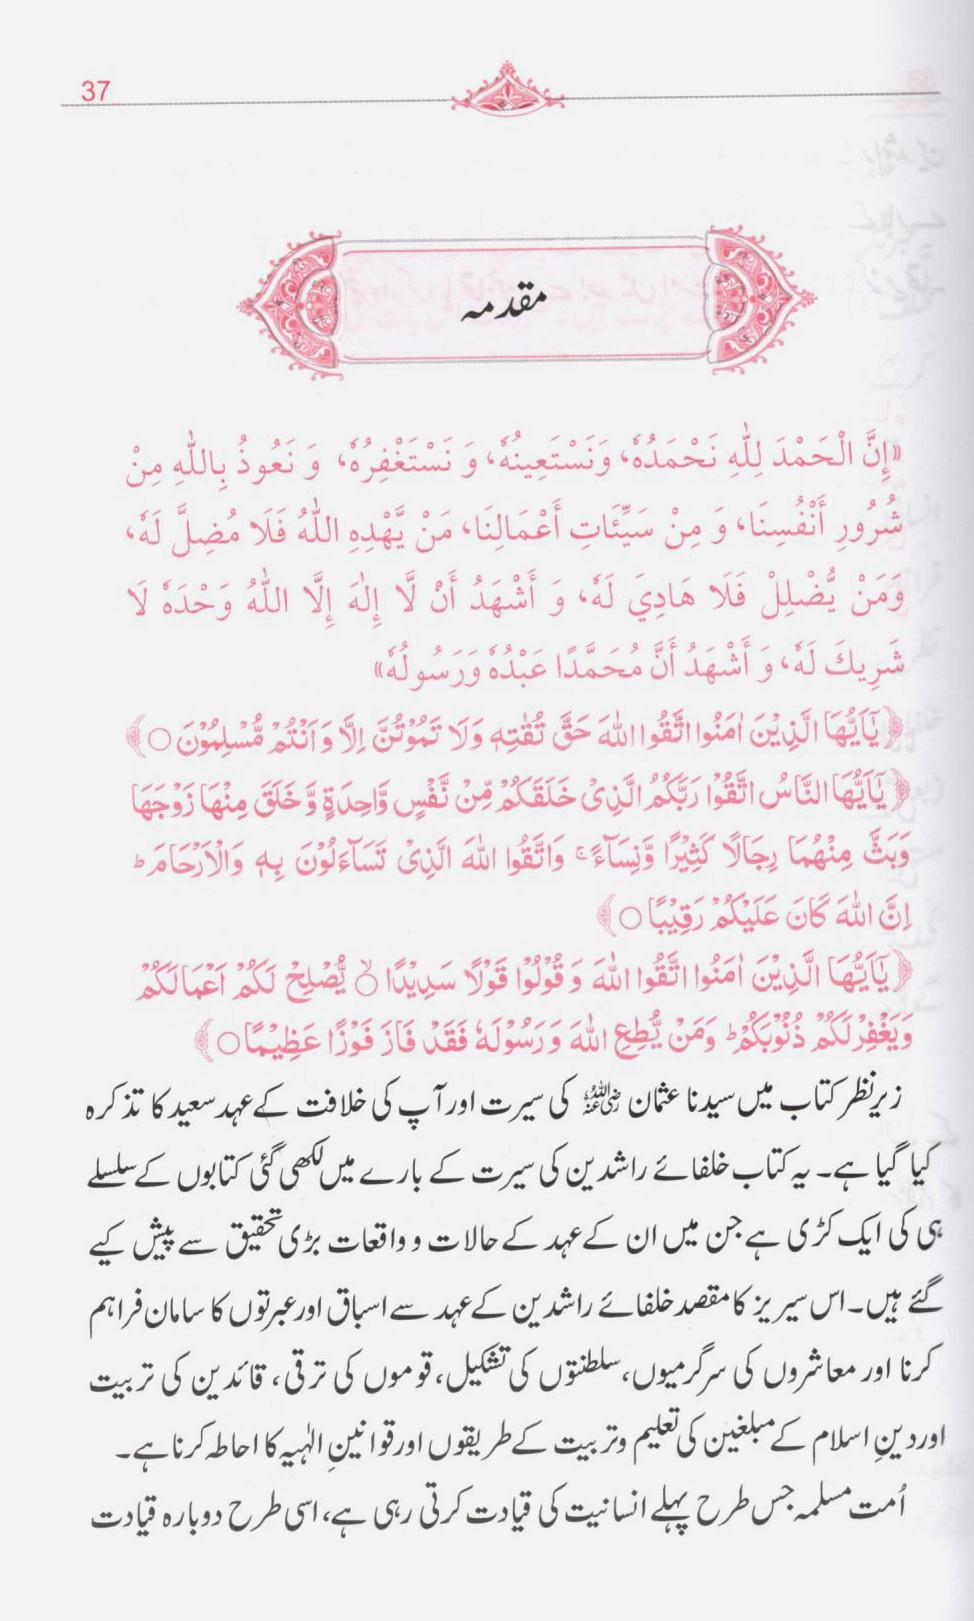 37
مقدمہ
«إِنَّ الْحَمْدَ لِلّٰهِ نَحْمَدُهٗ، وَنَسْتَعِينُهٗ، وَ نَسْتَغْفِرُهٗ، وَ نَعُوذُ بِاللّٰهِ مِنْ
شُرُورِ أَنْفُسِنَا، وَ مِنْ سَيِّئَاتِ أَعْمَالِنَا، مَنْ يَّهْدِهِ اللّٰهُ فَلَا مُضِلَّ لَهٗ،
وَمَنْ يُّضْلِلْ فَلَا هَادِيَ لَهٗ، وَ أَشْهَدُ أَنْ لَّا إِلٰهَ إِلَّا اللّٰهُ وَحْدَهٗ لَا
شَرِيكَ لَهٗ، وَ أَشْهَدُ أَنَّ مُحَمَّدًا عَبْدُهٗ وَرَسُولُهٗ»
﴿يٰۤاَيُّهَا الَّذِيْنَ اٰمَنُوا اتَّقُوا اللّٰهَ حَقَّ تُقٰتِهٖ وَلَا تَمُوْتُنَّ اِلَّا وَاَنْتُمْ مُّسْلِمُوْنَ ○﴾
﴿يٰۤاَيُّهَا النَّاسُ اتَّقُوْا رَبَّكُمُ الَّذِيْ خَلَقَكُمْ مِّنْ نَّفْسٍ وَّاحِدَةٍ وَّخَلَقَ مِنْهَا زَوْجَهَا
وَبَثَّ مِنْهُمَا رِجَالًا كَثِيْرًا وَّنِسَآءً ۚ وَاتَّقُوا اللّٰهَ الَّذِيْ تَسَآءَلُوْنَ بِهٖ وَالْاَرْحَامَ ؕ
اِنَّ اللّٰهَ كَانَ عَلَيْكُمْ رَقِيْبًا ○﴾
﴿يٰۤاَيُّهَا الَّذِيْنَ اٰمَنُوا اتَّقُوا اللّٰهَ وَقُوْلُوْا قَوْلًا سَدِيْدًا ○ۙ يُّصْلِحْ لَكُمْ اَعْمَالَكُمْ
وَيَغْفِرْ لَكُمْ ذُنُوْبَكُمْ ؕ وَمَنْ يُّطِعِ اللّٰهَ وَرَسُوْلَهٗ فَقَدْ فَازَ فَوْزًا عَظِيْمًا ○﴾
زیرِ نظر کتاب میں سیدنا عثمان رضی اللہ عنہ کی سیرت اور آپ کی خلافت کے عہد سعید کا تذکرہ
کیا گیا ہے۔ یہ کتاب خلفائے راشدین کی سیرت کے بارے میں لکھی گئی کتابوں کے سلسلے
ہی کی ایک کڑی ہے جن میں ان کے عہد کے حالات و واقعات بڑی تحقیق سے پیش کیے
گئے ہیں۔ اس سیریز کا مقصد خلفائے راشدین کے عہد سے اسباق اور عبرتوں کا سامان فراہم
کرنا اور معاشروں کی سرگرمیوں، سلطنتوں کی تشکیل، قوموں کی ترقی، قائدین کی تربیت
اور دینِ اسلام کے مبلغین کی تعلیم و تربیت کے طریقوں اور قوانینِ الٰہیہ کا احاطہ کرنا ہے۔
اُمت مسلمہ جس طرح پہلے انسانیت کی قیادت کرتی رہی ہے، اسی طرح دوبارہ قیادت